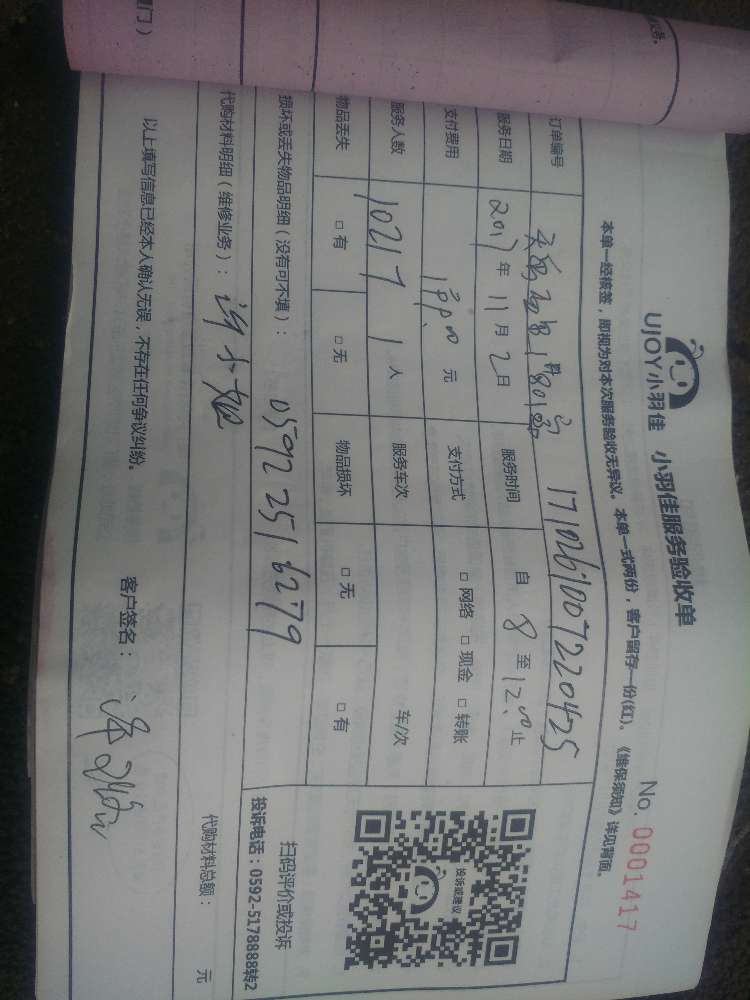 UJOY小羽佳 小羽佳服务验收单 No. 0001417
本单一经核签，即视为对本次服务验收无异议。本单一式两份，客户留存一份(红)。《维保须知》详见背面。
订单编号 1710261007220425
服务日期 2017年11月2日 服务时间 自8至12.00止
支付费用 元 支付方式 □网络 □现金 □转账
服务人数 10217 1人 服务车次 车/次
物品丢失 □有 □无 物品损坏 □无 □有
损坏或丢失物品明细（没有可不填）： 0592 2516279
代购材料明细（维修业务）： 许小姐 代购材料总额： 元
以上填写信息已经本人确认无误，不存在任何争议纠纷。 客户签名：
投诉或建议
扫码评价或投诉
投诉电话：0592-5178888转2